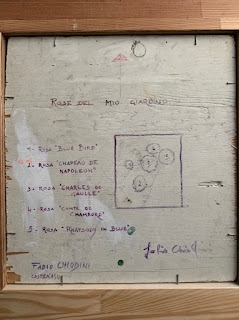 ROSE DEL MIO GIARDINO
1- ROSA "BLUE BIRD"
2- ROSA "CHAPEAU DE
NAPOLEON"
3- ROSA "CHARLES DE
GAULLE"
4- ROSA "COMTE DE
CHAMBORD"
5- ROSA "RHAPSODY IN BLUE"
FABIO CHIODINI